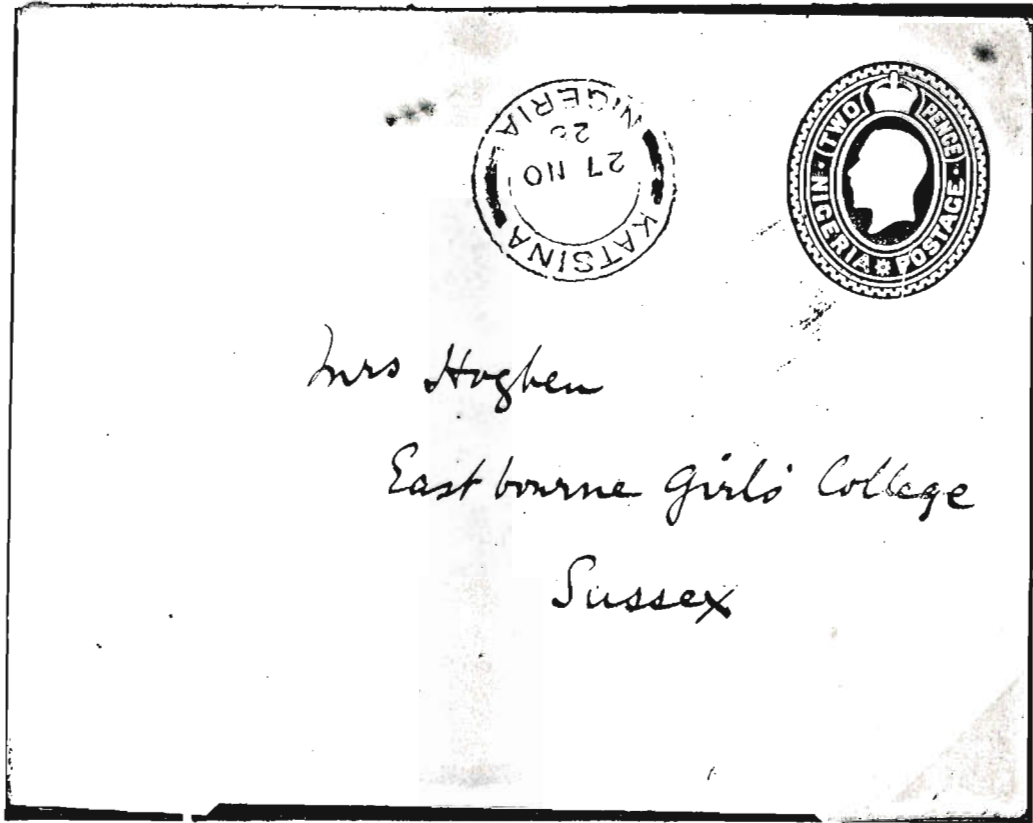 KATSINA
27 NO
NIGERIA
TWO PENCE
NIGERIA POSTAGE
Mrs Hogben
Eastbourne Girls' College
Sussex